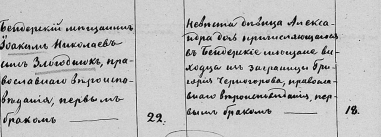 Бендерскій мѣщанинъ
Іоакимъ Николаевъ
сынъ Злободюкъ, пра-
вославнаго вѣроиспо-
вѣданія, первымъ
бракомъ
22.
Невѣста дѣвица Алекса
ндра дочь причисляющагося
въ Бендерскіе мѣщане вы-
ходца изъ заграницы Гри-
горія Черногорова, правосла-
внаго вѣроисповѣданія, пер-
вымъ бракомъ
18.